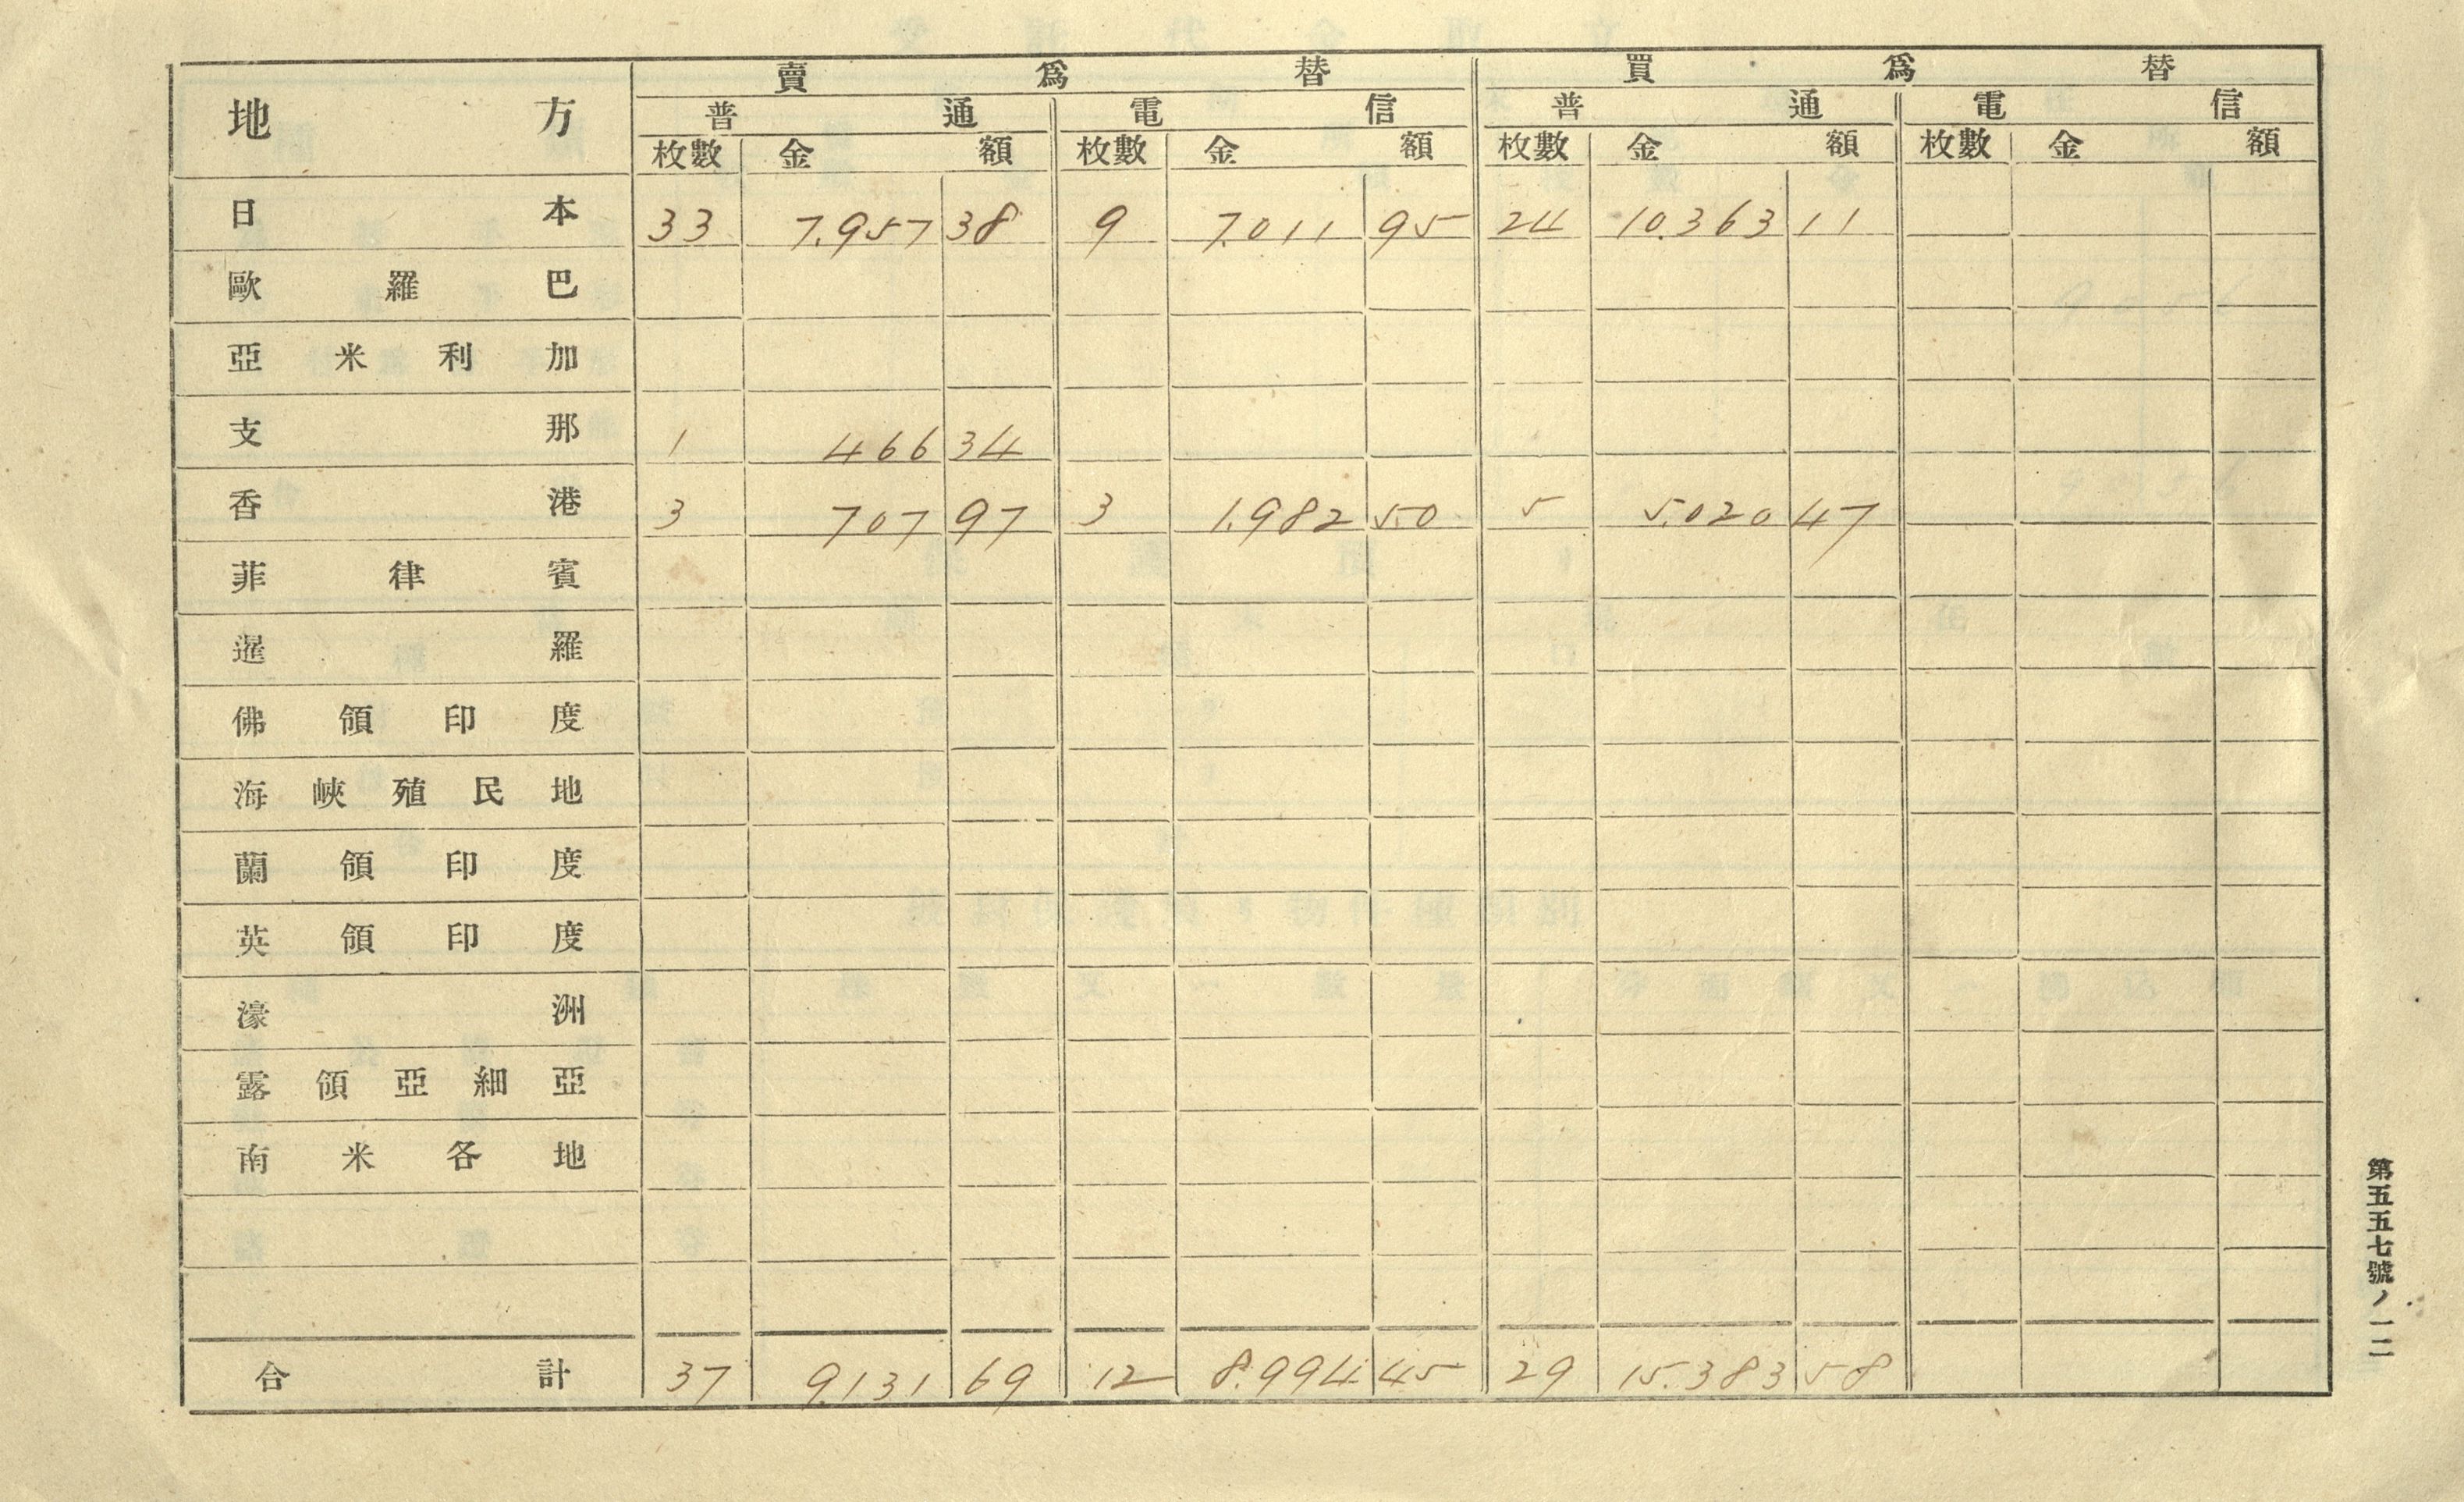 地方 賣爲替 買爲替
普通 電信 普通 電信
枚數 金額 枚數 金額 枚數 金額 枚數 金額
日本 33 7.957 38 9 7.011 95 24 10.363 11
歐羅巴
亞米利加
支那 1 466 34
香港 3 707 97 3 1.982 50 5 5.020 47
菲律賓
暹羅
佛領印度
海峽殖民地
蘭領印度
英領印度
濠洲
露領亞細亞
南米各地
合計 37 9.131 69 12 8.994 45 29 15.383 58
第五五七號ノ一二